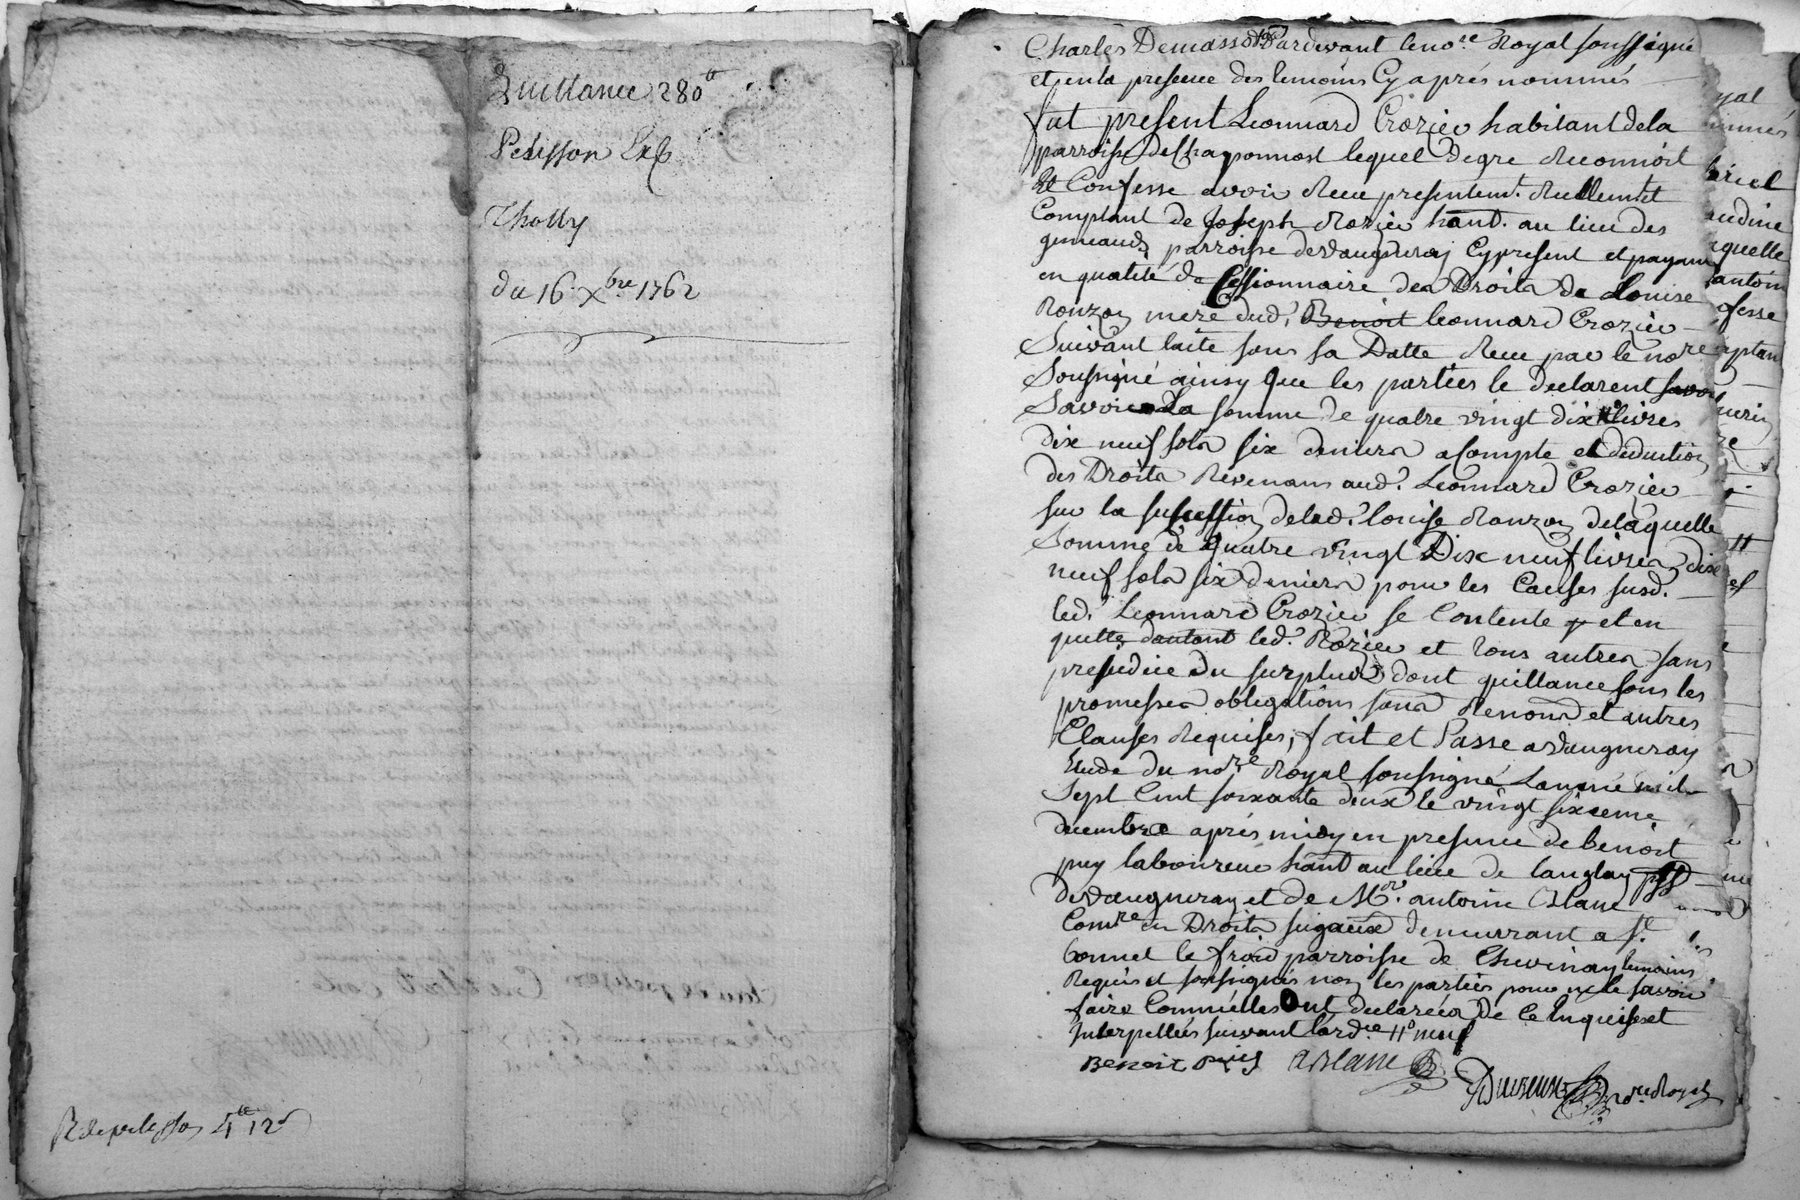 Quittance 280ᵗᵗ
Pelisson
Tholly
du 16 xbre 1762
R de pelisson 4ᵗᵗ 12ˢ
Charles Demasso Pardevant le nore Royal soussigné
et en la presence des temoins Cy aprés nommés
fut present Leonnard Crozier habitant de la
parroisse de Chaponnost lequel de gre Reconnoit
Et Confesse avoir Reçu presentemt. Reellemt. et
Comptant de Joseph Rozier hant. au lieu des
parroisse de Vaugneray Cy present et payant
en qualité de Cessionnaire des Droits de Louise
Ronzon mere dud. Benoit leonnard Crozier
Suivant lacte sous sa Datte Reçu par le nore
Soussigné ainsy que les parties le declarent savoir
Savoir La somme de quatre vingt dix livres
dix neuf sols six deniers a Compte et deduction
des Droits Revenans aud. Leonnard Crozier
sur la succession de lad. louise Ronzon de laquelle
Somme de quatre vingt Dix neuf livres dix
neuf sols six deniers pour les Causes susd.
led. Leonnard Crozier se Contente et en
quitte dautant led. Rozier et tous autres sans
prejudice du surplus dont quittance sous les
promesses obligations sans Renond et autres
Clauses Requises, fait et Passe a Vaugneray
Etude du nore Royal soussigné Lanné mil
Sept Cent soixante deux le vingt sixieme
decembre aprés midy en presence de benoit
puy laboureur hant au lieu de
de Vaugneray et de Mr. antoine Blanc
Comre en Droits demeurrant a St.
bonnet le froid parroisse de Chevinay temoins
Requis et soussignés non les parties pour ne le savoir
faire Comme elles Ont declarées De Ce Enquises et
Interpellées suivant lordce
Benoit puy ABlanc
nore Royal